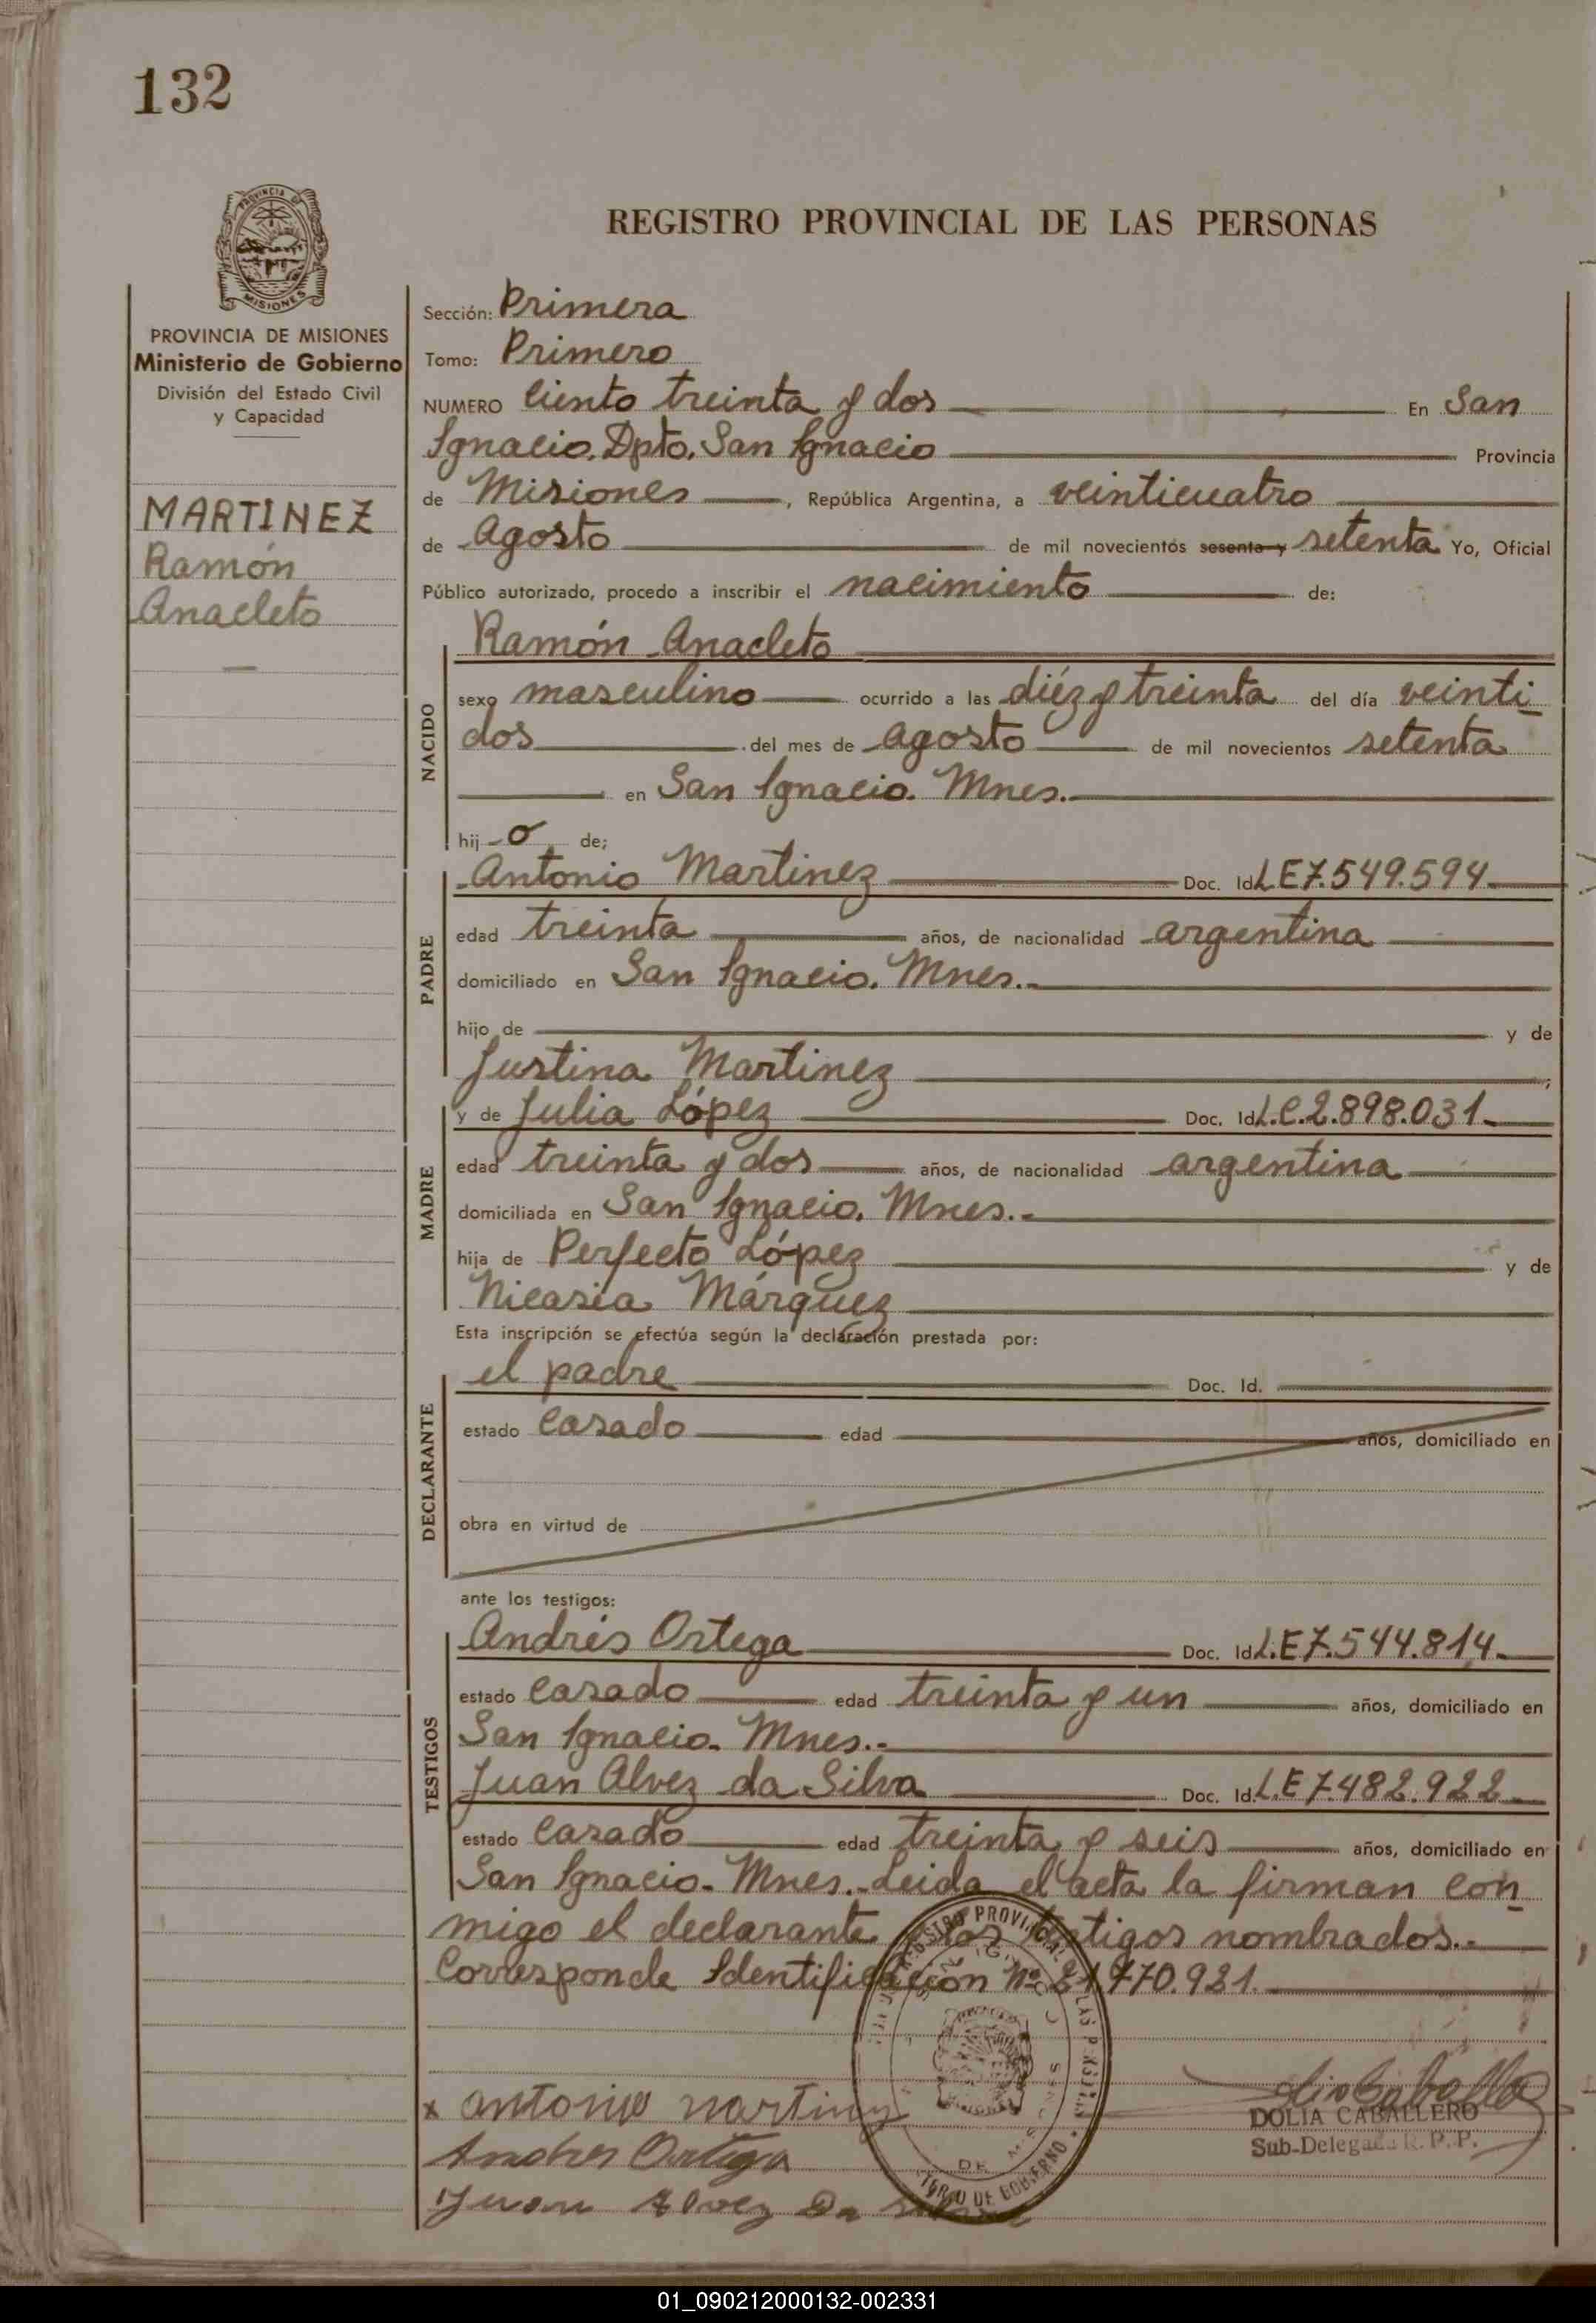 132
PROVINCIA DE
MISIONES
PROVINCIA DE MISIONES
Ministerio de Gobierno
División del Estado Civil
y Capacidad
MARTINEZ
Ramón
Anacleto
REGISTRO PROVINCIAL DE LAS PERSONAS
Sección: Primera
Tomo: Primero
NUMERO Ciento treinta y dos En San
Ignacio. Dpto. San Ignacio Provincia
de Misiones, República Argentina, a veinticuatro
de Agosto de mil novecientos sesenta y setenta Yo, Oficial
Público autorizado, procedo a inscribir el nacimiento de:
NACIDO
Ramón Anacleto
sexo masculino ocurrido a las diéz y treinta del día veinti
dos del mes de Agosto de mil novecientos setenta
en San Ignacio. Mnes.
hij o de;
PADRE
Antonio Martinez Doc. Id L.E 7.549.594
edad treinta años, de nacionalidad argentina
domiciliado en San Ignacio. Mnes.-
hijo de y de
Justina Martinez ;
MADRE
y de Julia López Doc. Id L.C. 2.898.031
edad treinta y dos años, de nacionalidad argentina
domiciliada en San Ignacio. Mnes.-
hija de Perfecto López y de
Nicasia Márquez
Esta inscripción se efectúa según la declaración prestada por:
DECLARANTE
el padre Doc. Id.
estado Casado edad años, domiciliado en
obra en virtud de
ante los testigos:
TESTIGOS
Andrés Ortega Doc. Id L.E 7.544.814
estado Casado edad treinta y un años, domiciliado en
San Ignacio. Mnes.-
Juan Alvez da Silva Doc. Id. L.E 7.482.922
estado Casado edad treinta y seis años, domiciliado en
San Ignacio. Mnes.- Leida el acta la firman con
migo el declarante y los testigos nombrados.-
Corresponde Identificación Nº 21.770.921.
x antonio martinez
Andres Ortega
Juan Alvez Da Silva
DOLIA CABALLERO
Sub-Delegada R. P. P.
01_090212000132-002331